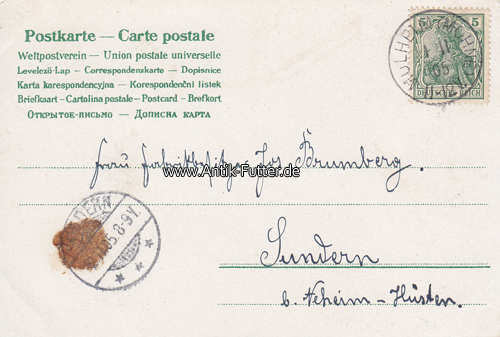 Postkarte — Carte postale
Weltpostverein — Union postale universelle
Levelező-Lap — Correspondenzkarte — Dopisnice
Karta korespondencyjna — Korespondenční lístek
Briefkaart — Cartolina postale — Postcard — Brefkort
Открытое-письмо — Дописна карта
5 5
DEUTSCHES REICH
MÜLHEIM
Frau Fabrikbesitzer Jos Brumberg.
www.Antik-Futter.de
DERN
05.8-9V.
Sundern
b. Neheim-Hüsten.